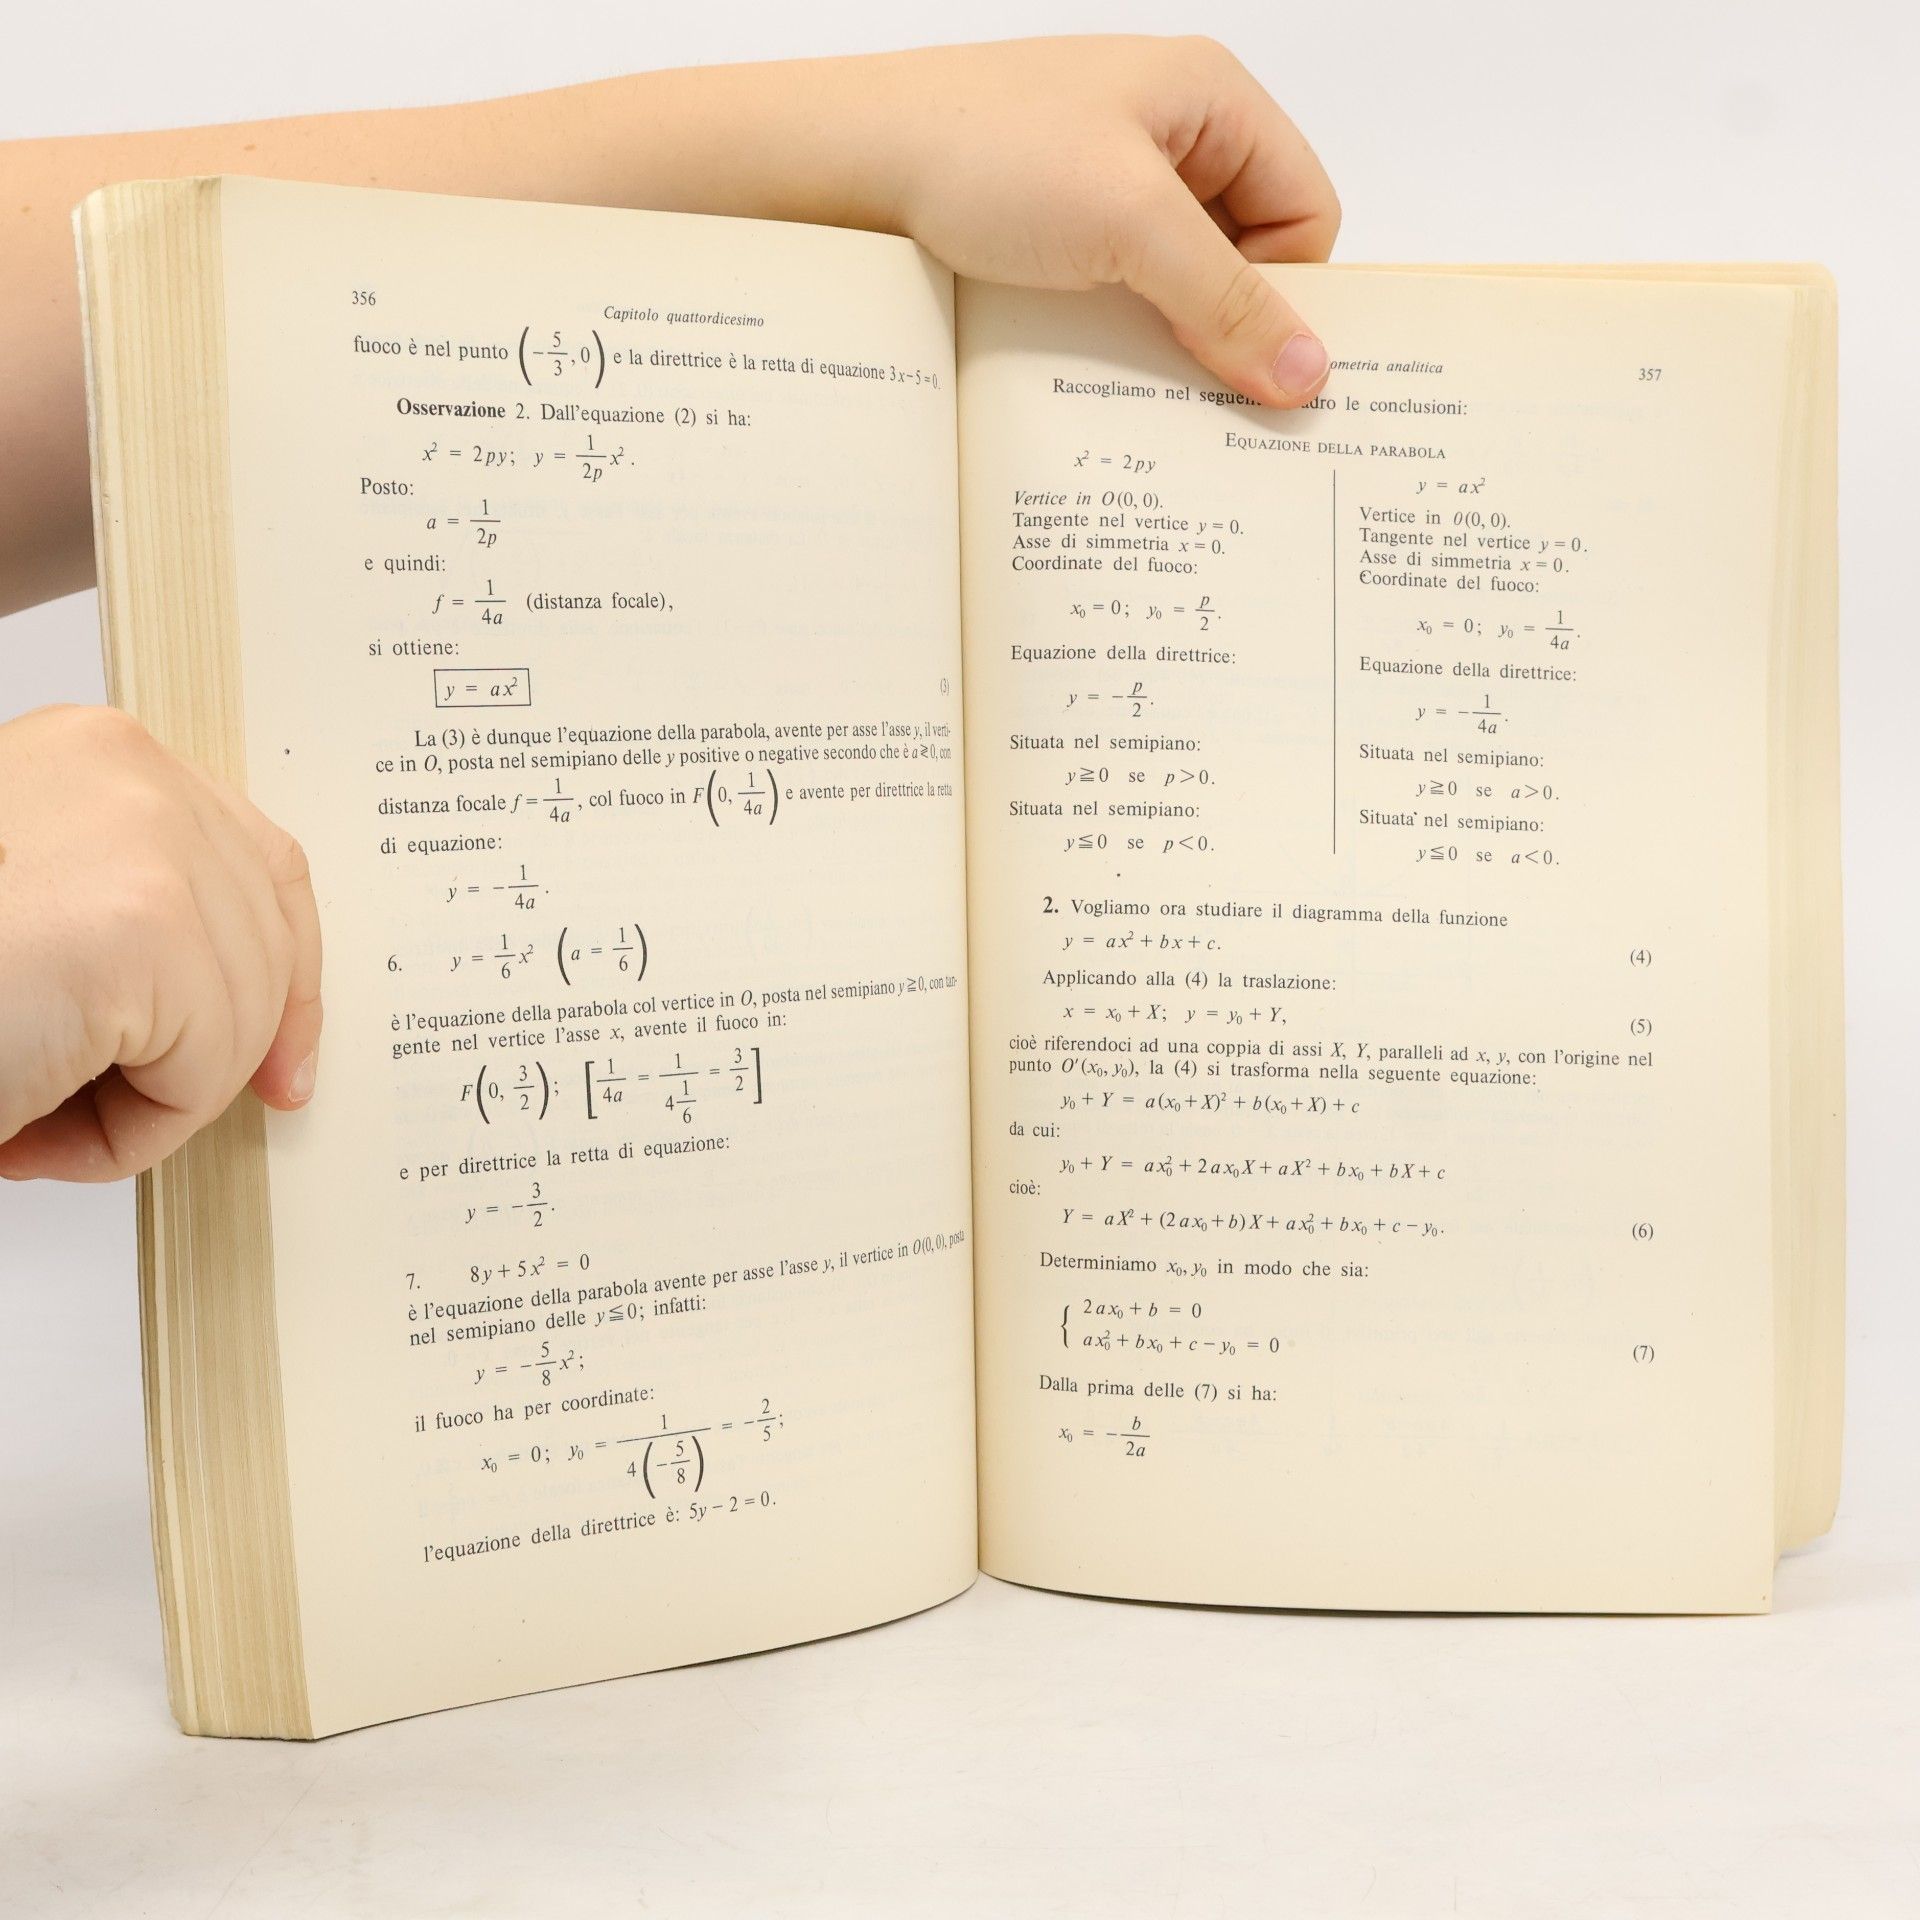 356
Capitolo quattordicesimo
fuoco è nel punto (−5/3, 0) e la direttrice è la retta di equazione 3x−5=0.
Osservazione 2. Dall'equazione (2) si ha:
x² = 2py; y = 1/2p x².
Posto:
a = 1/2p
e quindi:
f = 1/4a (distanza focale),
si ottiene:
y = ax² (3)
La (3) è dunque l'equazione della parabola, avente per asse l'asse y, il verti-
ce in O, posta nel semipiano delle y positive o negative secondo che è a≷0, con
distanza focale f = 1/4a, col fuoco in F(0, 1/4a) e avente per direttrice la retta
di equazione:
y = −1/4a.
6. y = 1/6 x² (a = 1/6)
è l'equazione della parabola col vertice in O, posta nel semipiano y≧0, con tan-
gente nel vertice l'asse x, avente il fuoco in:
F(0, 3/2); [1/4a = 1/(4 1/6) = 3/2]
e per direttrice la retta di equazione:
y = −3/2.
7. 8y + 5x² = 0
è l'equazione della parabola avente per asse l'asse y, il vertice in O(0,0), posta
nel semipiano delle y≦0; infatti:
y = −5/8 x²;
il fuoco ha per coordinate:
x₀ = 0; y₀ = 1/(4(−5/8)) = −2/5;
l'equazione della direttrice è: 5y − 2 = 0.
ometria analitica
357
Raccogliamo nel le conclusioni:
EQUAZIONE DELLA PARABOLA
x² = 2py
Vertice in O(0, 0).
Tangente nel vertice y = 0.
Asse di simmetria x = 0.
Coordinate del fuoco:
x₀ = 0; y₀ = p/2.
Equazione della direttrice:
y = −p/2.
Situata nel semipiano:
y≧0 se p>0.
Situata nel semipiano:
y≦0 se p<0.
y = ax²
Vertice in 0(0, 0).
Tangente nel vertice y = 0.
Asse di simmetria x = 0.
Coordinate del fuoco:
x₀ = 0; y₀ = 1/4a.
Equazione della direttrice:
y = −1/4a.
Situata nel semipiano:
y≧0 se a>0.
Situata nel semipiano:
y≦0 se a<0.
2. Vogliamo ora studiare il diagramma della funzione
y = ax² + bx + c. (4)
Applicando alla (4) la traslazione:
x = x₀ + X; y = y₀ + Y, (5)
cioè riferendoci ad una coppia di assi X, Y, paralleli ad x, y, con l'origine nel
punto O'(x₀, y₀), la (4) si trasforma nella seguente equazione:
y₀ + Y = a(x₀+X)² + b(x₀+X) + c
da cui:
y₀ + Y = ax₀² + 2ax₀X + aX² + bx₀ + bX + c
cioè:
Y = aX² + (2ax₀+b)X + ax₀² + bx₀ + c − y₀. (6)
Determiniamo x₀, y₀ in modo che sia:
{ 2ax₀ + b = 0
ax₀² + bx₀ + c − y₀ = 0 (7)
Dalla prima delle (7) si ha:
x₀ = −b/2a